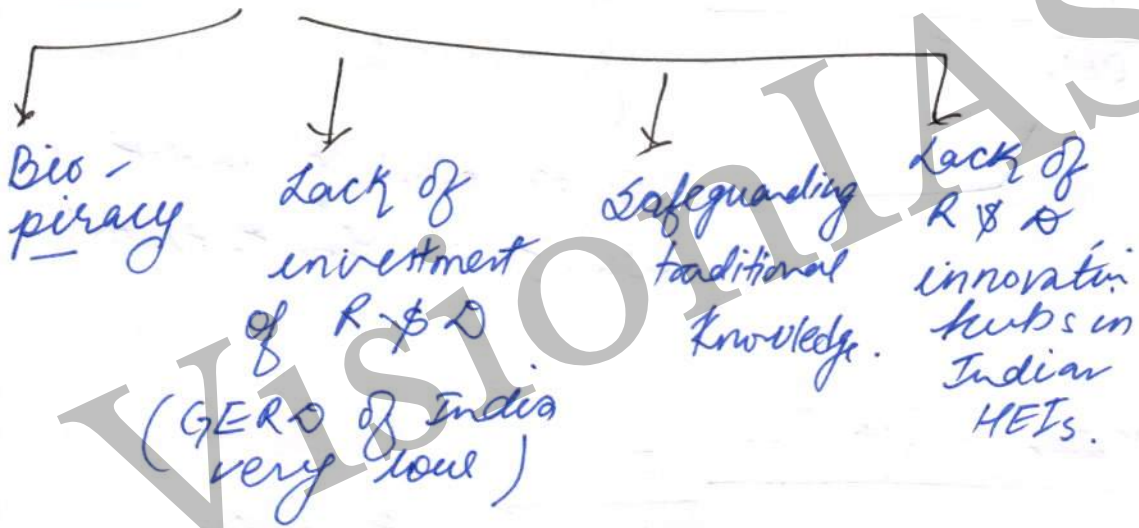 Bio-
piracy
Lack of
investment
of R & D
(GERD of India
very low)
Safeguarding
traditional
Knowledge.
Lack of
R & D
innovation
hubs in
Indian
HEIs.
VisionIAS